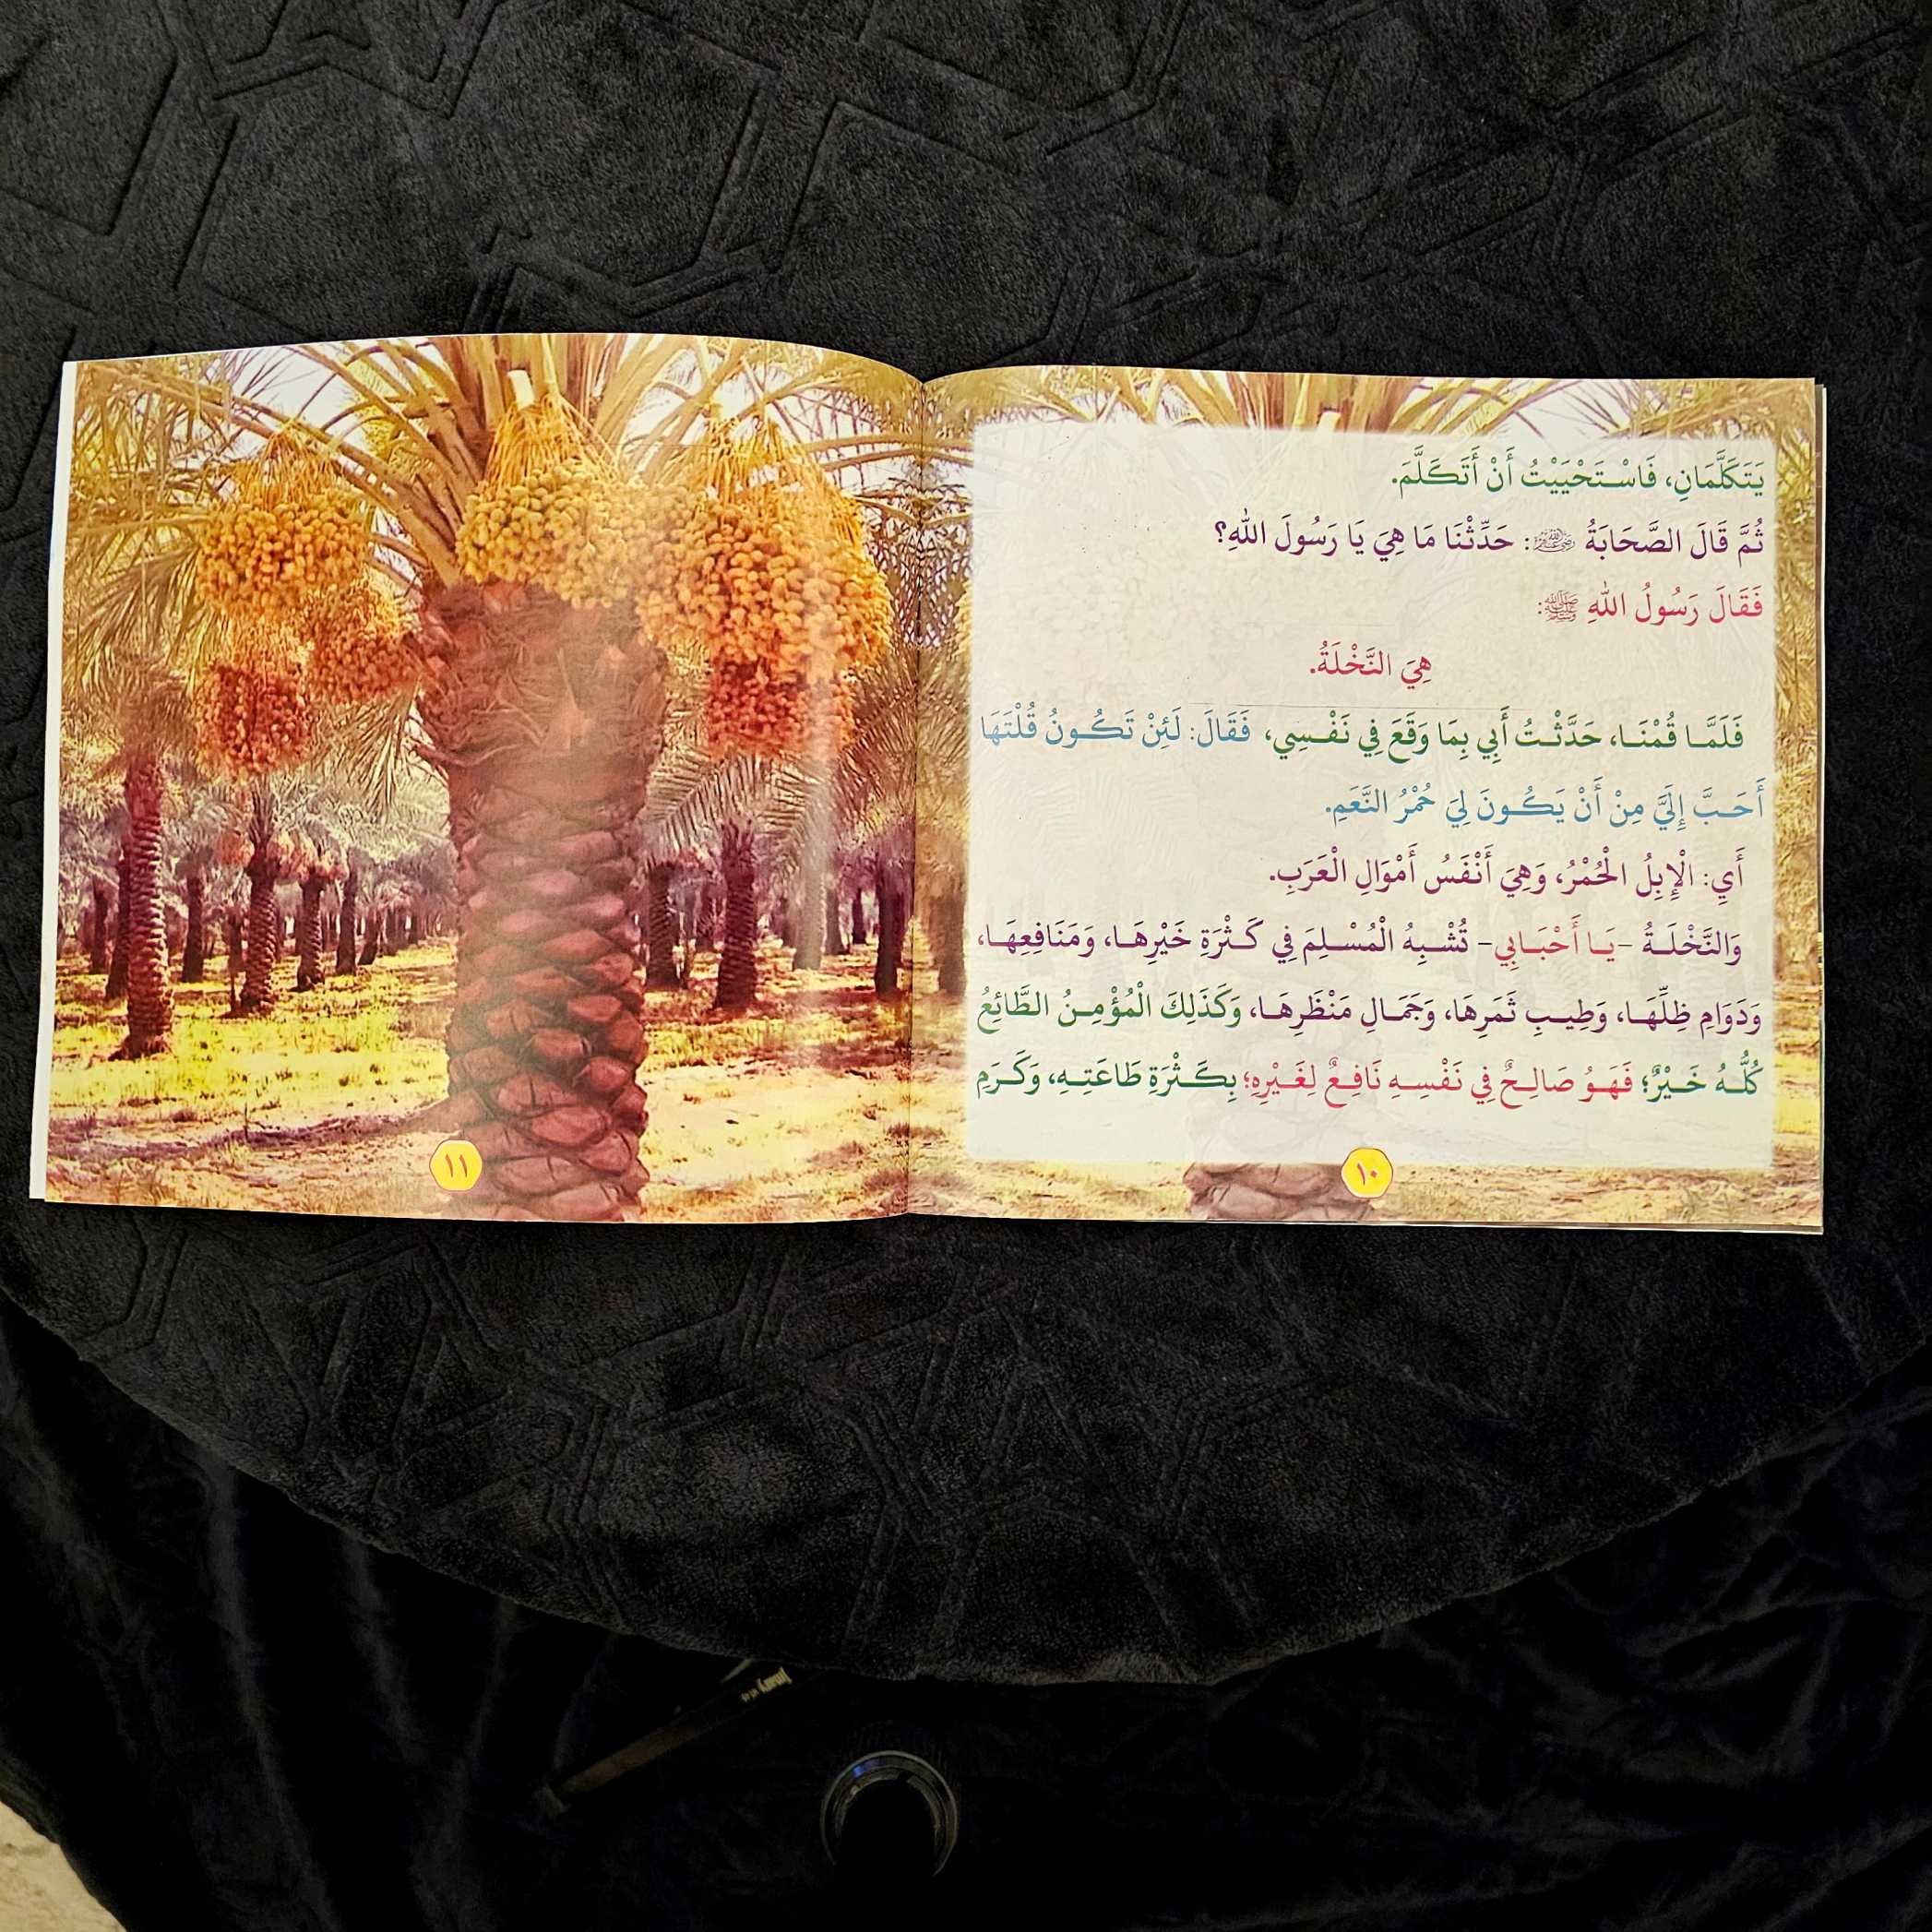 يَتَكَلَّمَانِ، فَاسْتَحْيَيْتُ أَنْ أَتَكَلَّمَ.
ثُمَّ قَالَ الصَّحَابَةُ ﵃: حَدِّثْنَا مَا هِيَ يَا رَسُولَ اللهِ؟
فَقَالَ رَسُولُ اللهِ ﷺ:
هِيَ النَّخْلَةُ.
فَلَمَّا قُمْنَا، حَدَّثْتُ أَبِي بِمَا وَقَعَ فِي نَفْسِي، فَقَالَ: لَئِنْ تَكُونُ قُلْتَهَا
أَحَبَّ إِلَيَّ مِنْ أَنْ يَكُونَ لِيَ حُمْرُ النَّعَمِ.
أَيِ: الْإِبِلُ الْحُمْرُ، وَهِيَ أَنْفَسُ أَمْوَالِ الْعَرَبِ.
وَالنَّخْلَةُ -يَا أَحْبَابِي- تُشْبِهُ الْمُسْلِمَ فِي كَثْرَةِ خَيْرِهَا، وَمَنَافِعِهَا،
وَدَوَامِ ظِلِّهَا، وَطِيبِ ثَمَرِهَا، وَجَمَالِ مَنْظَرِهَا، وَكَذَلِكَ الْمُؤْمِنُ الطَّائِعُ
كُلُّهُ خَيْرٌ؛ فَهُوَ صَالِحٌ فِي نَفْسِهِ نَافِعٌ لِغَيْرِهِ؛ بِكَثْرَةِ طَاعَتِهِ، وَكَرَمِ
١٠
١١